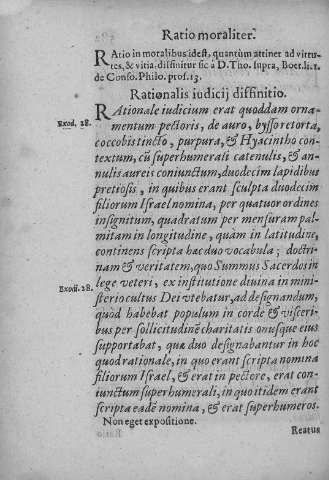 Ratio moraliter.
RAtio in moralibus idest, quantùm attinet ad virtu-
tes, & vitia. diffinitur sic à D. Tho. supra, Boet. li. 1.
de Conso. Philo. pros. 13.
Rationalis iudicij diffinitio.
RAtionale iudicium erat quoddam orna-
Exod. 28.
mentum pectoris, de auro, bysso retorta,
coccobistincto, purpura, & Hyacintho con-
textum, cū superhumerali catenulis, & an-
nulis aureis coniunctum, duodecim lapidibus
pretiosis, in quibus erant sculpta duodecim
filiorum Israel nomina, per quatuor ordines
insignitum, quadratum per mensuram pal-
mitam in longitudine, quàm in latitudine,
continens scripta hæc duo vocabula; doctri-
nam & veritatem, quo Summus Sacerdos in
lege veteri, ex institutione diuina in mini-
Exod. 28.
sterio cultus Dei vtebatur, ad designandum,
quòd habebat populum in corde & visceri-
bus per sollicitudinē charitatis onusque eius
supportabat, quæ duo designabantur in hoc
quod rationale, in quo erant scripta nomina
filiorum Israel, & erat in pectore, erat con-
iunctum superhumerali, in quo itidem erant
scripta eadē nomina, & erat super humeros.
Non eget expositione.
Reatus